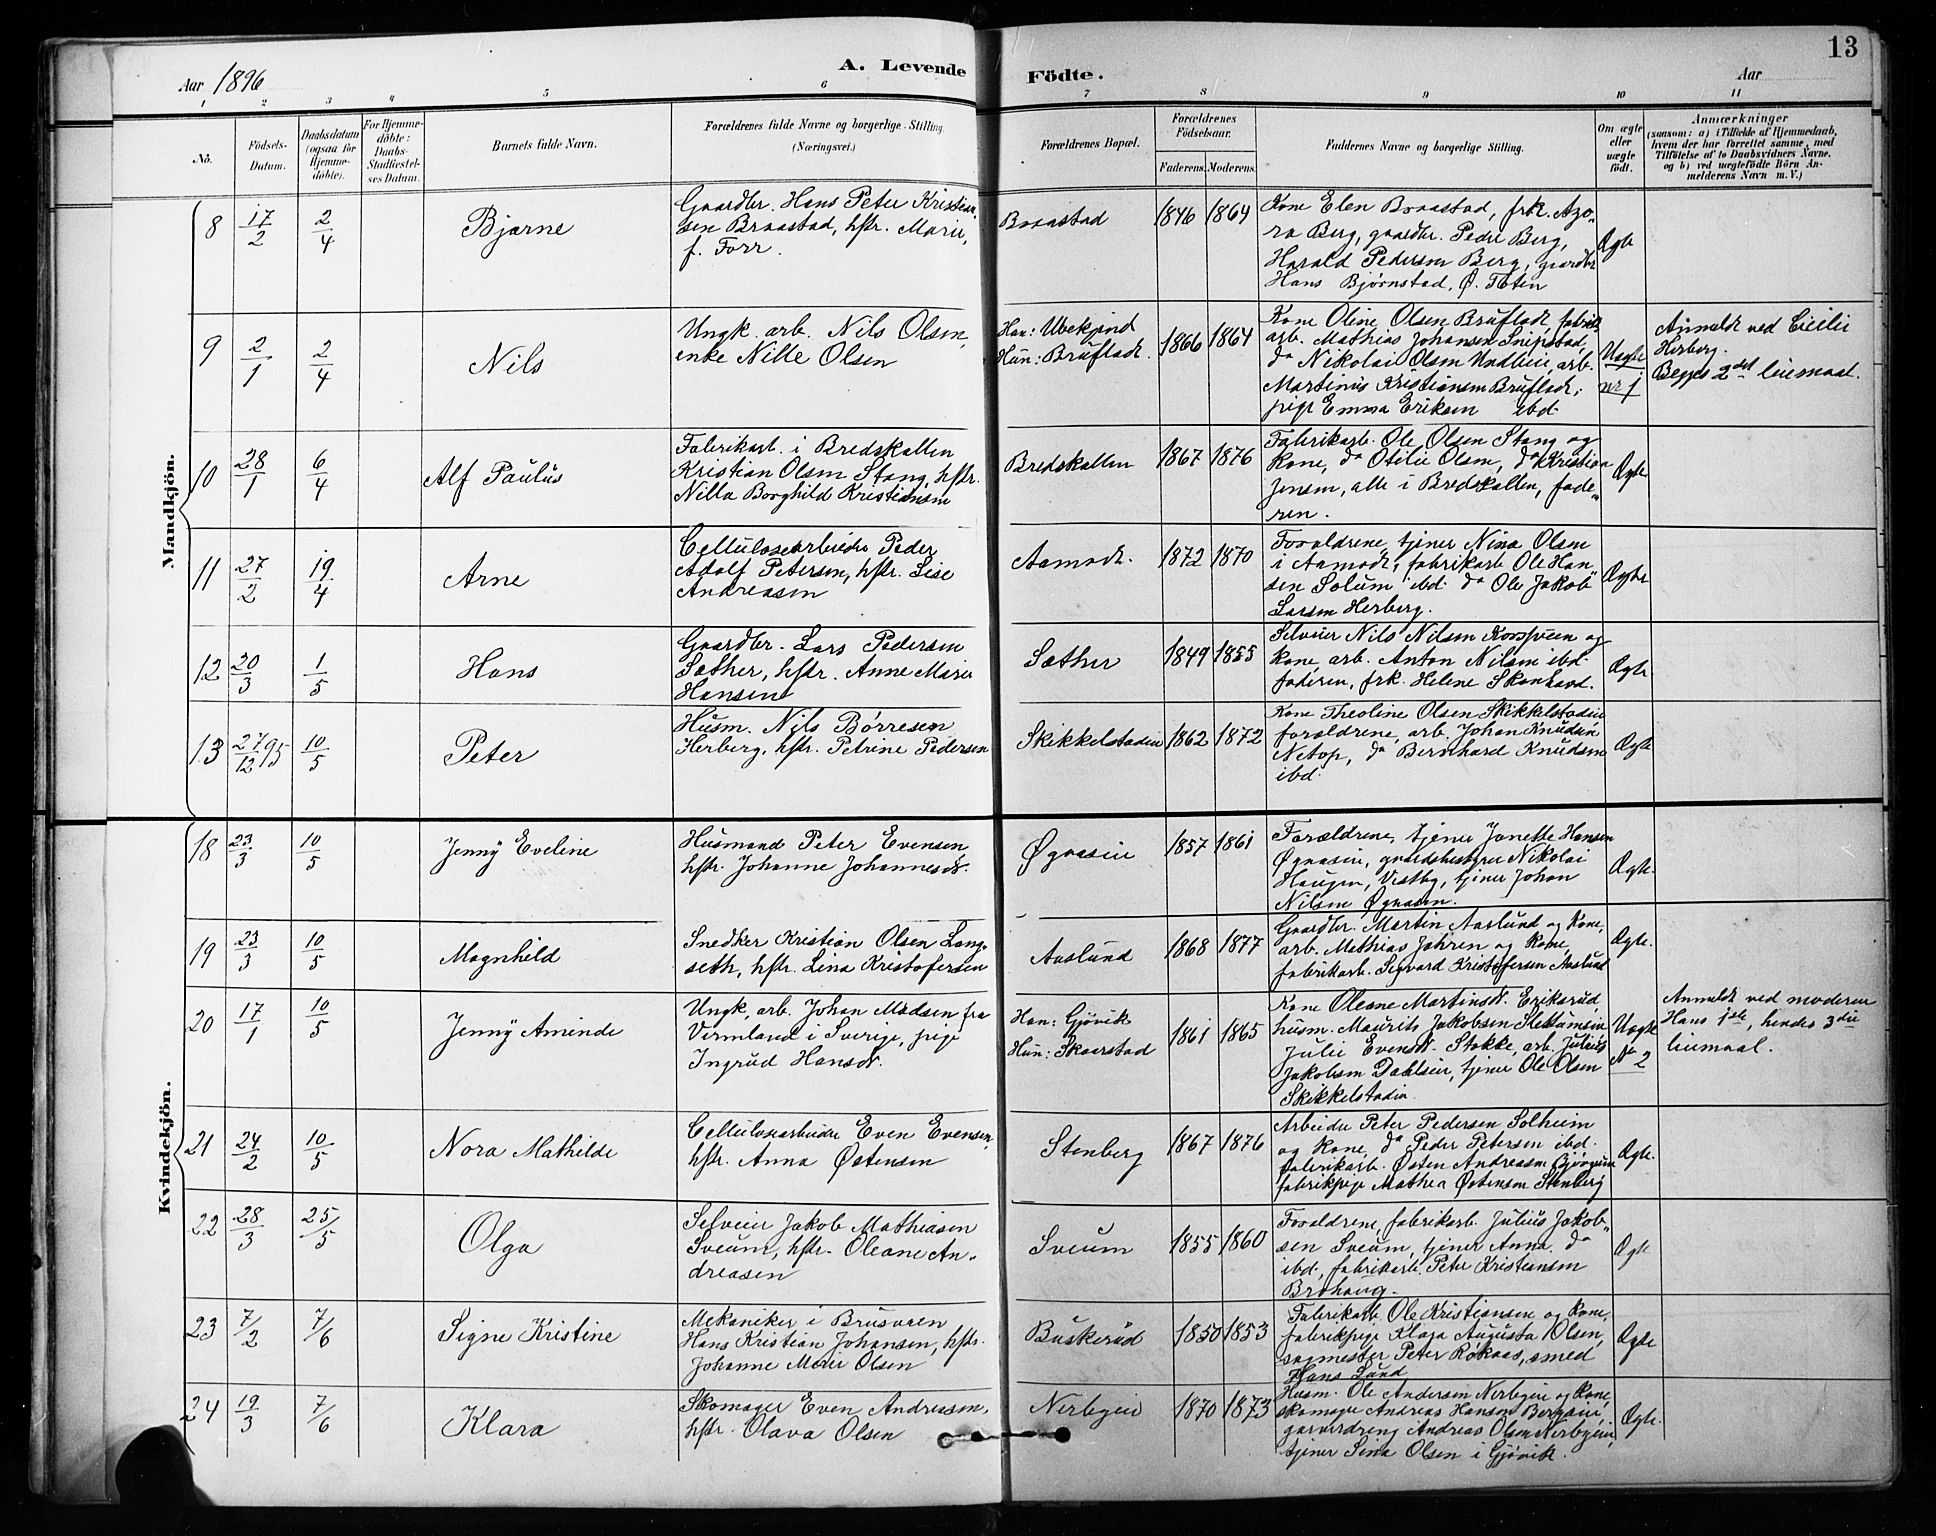 13
Aar 1896
A. Levende
Födte.
Aar
1 2 3 4 5 6 7 8 9 10 11
No.
Födsels-
Datum.
Daabsdatum
(ogsaa for
Hjemme-
döbte).
For Hjemme-
döbte:
Daabs-
Stadfæstel-
ses Datum.
Barnets fulde Navn.
Forældrenes fulde Navne og borgerlige Stilling.
(Næringsvei.)
Forældrenes Bopæl.
Forældrenes
Födselsaar.
Faderens.
Moderens.
Faddernes Navne og borgerlige Stilling.
Om ægte
eller
uægte
födt.
Anmærkninger
(saasom: a) i Tilfælde af Hjemmedaab,
hvem der har forrettet samme, med
Tilföielse af to Daabsvidners Navne.
og b) ved uægtefödte Börn An-
melderens Navn m. V.)
Mandkjön.
8 17/2 2/4 Bjarne
Gaardbr. Hans Peter Kristian-
sen Braastad, hstr. Marie,
f. Forr.
Braastad 1846 1864
Kone Elen Braastad, frk. Azo-
ra Berg, gaardbr. Peder Berg,
Harald Pedersen Berg, gaardbr
Hans Bjørnstad, Ø. Toten
Ægte
9 2/1 2/4 Nils
Ungk. arb. Nils Olsen,
enke Nille Olsen
Han: Ubekjend
Hun: Brufladt.
1866 1864
Kone Oline Olsen Brufladt, fabrik-
arb. Mathias Johansen Snipstad,
do Nikolai Olsen Undlien, arb.
Martinus Kristiansen Brufladt,
pige Emma Eriksen ibd.
Uægte
nr 1
Anmeldt ved Cecilie
Herberg.
Begges 2det leiemaal.
10 28/1 6/4 Alf Paulus
Fabrikarb. i Bredskallen
Kristian Olsen Stang, hstr.
Nilla Borghild Kristiansen
Bredskallen 1867 1876
Fabrikarb. Ole Olsen Stang og
Kone, do Otilie Olsen, do Kristian
Jensen, alle i Bredskallen, fade-
ren.
Ægte
11 27/2 19/4 Arne
Cellulosearbeider Peder
Adolf Petersen, hstr. Lise
Andreasen
Aamodt. 1872 1870
Forældrene, tjener Nina Olsen
i Aamodt, fabrikarb Ole Han-
sen Solum ibd. do Ole Jakob
Larsen Herberg.
Ægte
12 20/3 1/5 Hans
Gaardbr. Lars Pedersen
Sæther, hstr. Anne Marie
Hansen
Sæther 1849 1855
Selveier Nils Nilsen Korsveen og
kone, arb. Anton Nilsen ibd.
faderen, frk. Helene Skonhard.
Ægte
13 27/12 95 10/5 Peter
Husm. Nils Børresen
Herberg, hstr. Petrine Pedersen
Skikkelstadeie 1862 1872
Kone Theoline Olsen Skikkelstadeie
forældrene, arb. Johan Knudsen
Netop, do Bernhard Knudsen
ibd.
Ægte
Kvindekjön.
18 23/3 10/5 Jenny Eveline
Husmand Peter Evensen
hstr. Johanne Johannesdt.
Øgaaseie 1857 1861
Forældrene, tjener Janette Hansen
Øgaaseie, gaardsbestyrer Nikolai
Haugen, Vestby, tjener Johan
Nilsen Øgaasen.
Ægte.
19 23/3 10/5 Magnhild
Snedker Kristian Olsen Lang-
seth, hstr. Lina Kristofersen
Aaslund 1868 1877
Gaardbr. Martin Aaslund og Kone,
arb. Mathias Jahren og kone,
fabrikarb. Sigvard Kristofersen Aaslund
Ægte.
20 17/1 10/5 Jenny Aminde
Ungk, arb. Johan Madsen fra
Vermland i Sverige, pige
Ingrud Hansdt.
Han: Gjøvik
Hun: Skaarstad
1861 1865
Kone Oleane Martinsdt. Eriksrud,
husm. Maurits Jakobsen Slettumseie
Julie Evensdt. Stokke, arb. Julius
Jakobsen Dahlseie, tjener Ole Olsen
Skikkelstadeie.
Uægte
No 2
Anmeldt ved moderen
Hans 1ste, hendes 3die
leiemaal.
21 24/2 10/5 Nora Mathilde
Cellulosearbeider Even Evensen,
hstr. Anna Østensen
Stenberg 1867 1876
Arbeider Peter Pedersen Solheim
og kone, do Peder Petersen ibd.
fabrikarb. Østen Andreasen Bjørgum
fabrikpige Mathea Østensen Stenberg
Ægte.
22 28/3 25/5 Olga
Selveier Jakob Mathiasen
Sveum, hstr. Oleane An-
dreasen
Sveum 1855 1860
Forældrene, fabrikarb. Julius Jakob-
sen Sveum, tjener Anna do
ibd., fabrikarb. Peter Kristiansen
Brohaug.
Ægte.
23 7/2 7/6 Signe Kristine
Mekaniker i Brusveen
Hans Kristian Johansen, hstr.
Johanne Marie Olsen
Buskerud 1850 1853
Fabrikarb. Ole Kristiansen og kone,
fabrikpige Klara Augusta Olsen,
sagmester Peter Røkaas, smed
Hans Lund
Ægte
24 19/3 7/6 Klara
Skomager Even Andreasen,
hstr. Olava Olsen
Nerbyeie 1870 1873
Husm. Ole Andersen Nerbyeie og kone,
skomager Andreas Hansen Bergseie,
garverdreng Andreas Olsen Nerbyeie,
tjener Sina Olsen i Gjøvik.
Ægte.